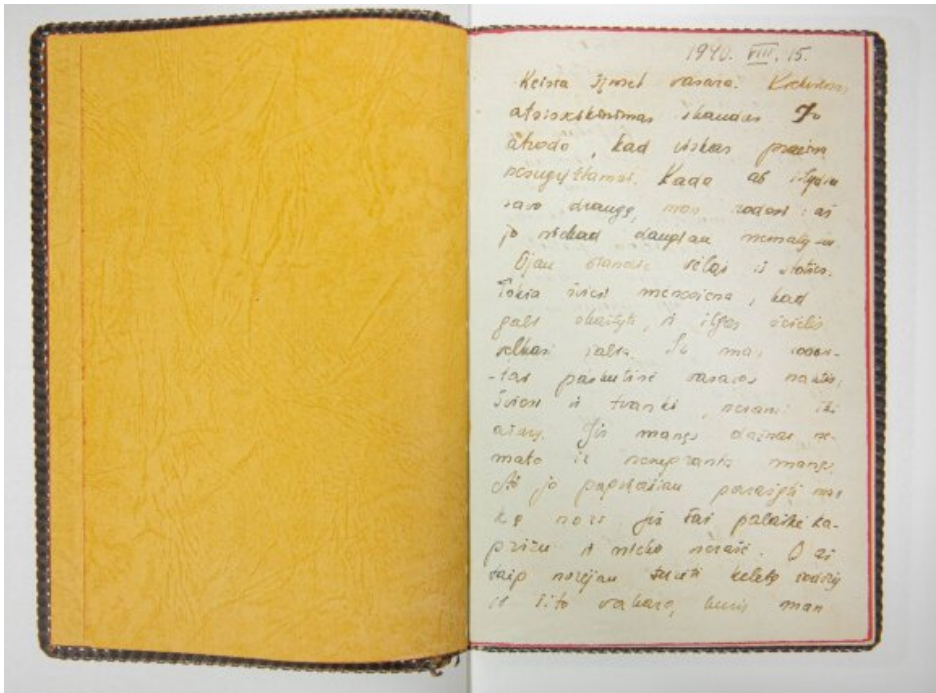 1940. VIII. 15.
Keista šįmet vasara.
atsisveikinimas skaudus. Jo
atrodo, kad viskas praeina
nesugrįžtamai. Kada aš išlydžiu
savo draugę, man rodosi: aš
jo niekad daugiau nematysiu
vėlai iš stoties.
Tokia šviesi mėnesiena, kad
gali skaityti, ir ilgas šešėlis
velkasi šalia. Su manim
-tas paskutinė vasaros naktis,
šviesi ir tvanki,
aušrą. Jis mangs dainas ne-
mato ir nesupranta mangs.
Aš jo paprašiau parašyti man
ką nors Jis tai palaikė ka-
prizu ir nieko nerašė. O aš
taip norėjau turėti keletą žodžių
iš šito vakaro, kuris man